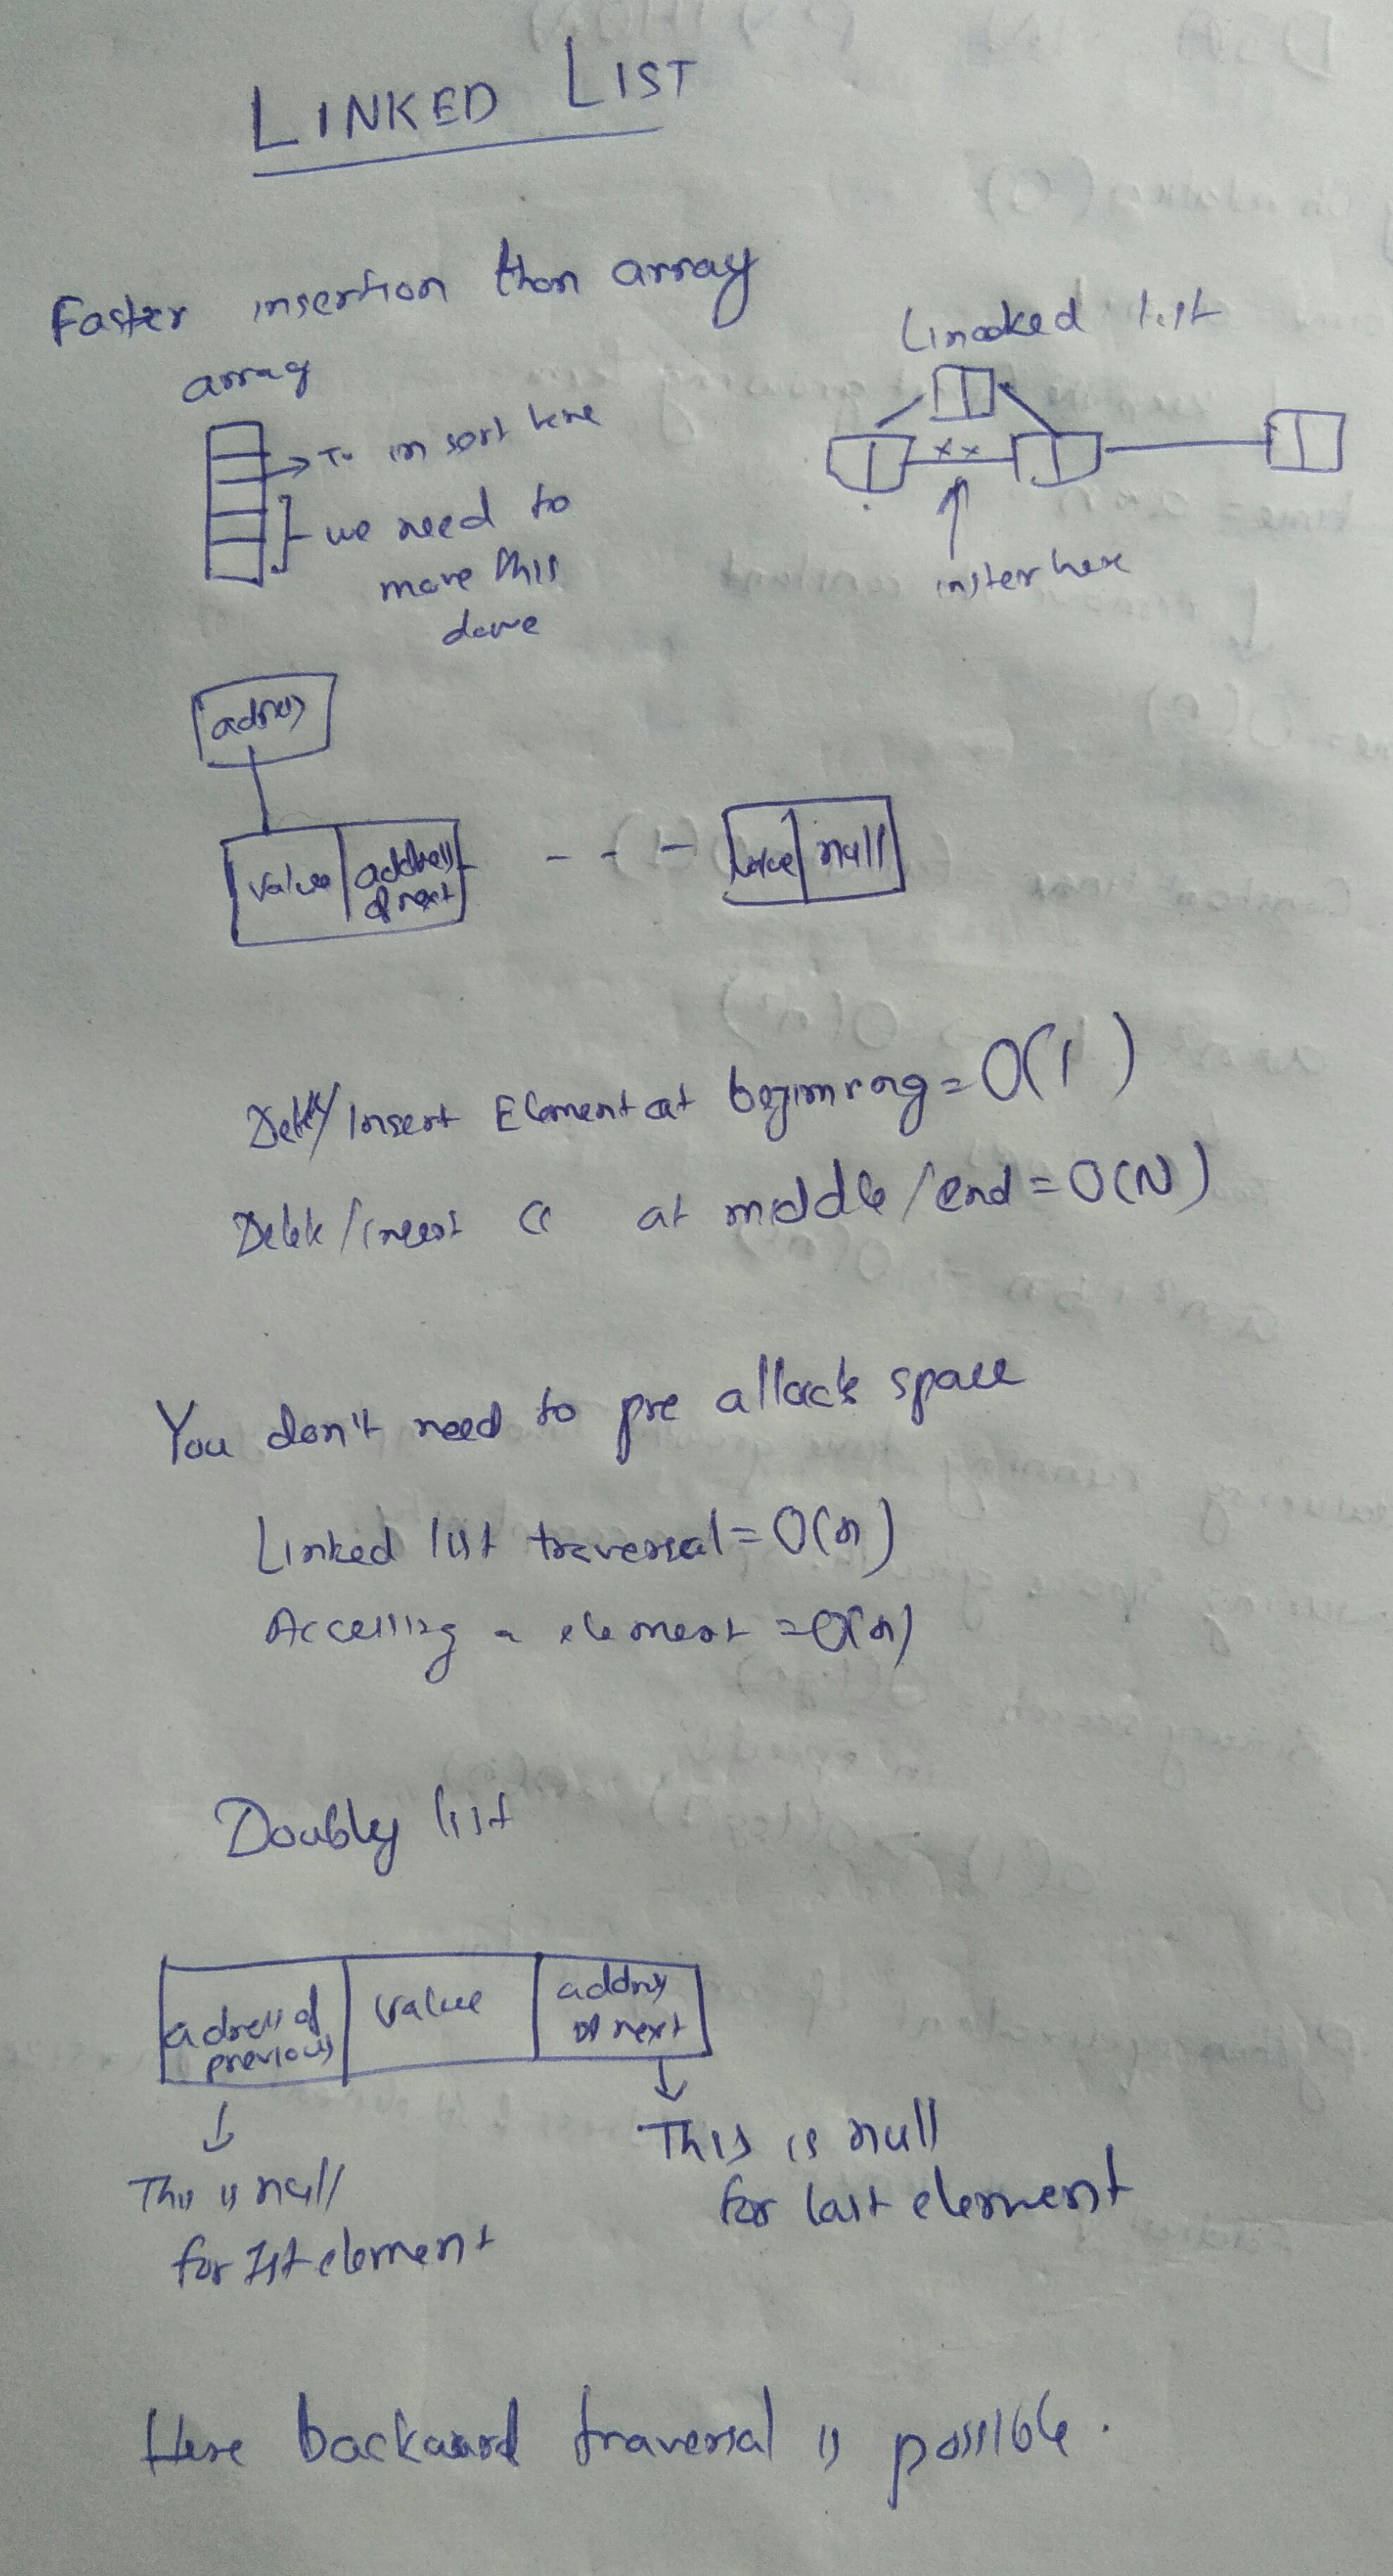 LINKED LIST
Faster insertion than array
array
→ To insort here
we need to
move this
dowe
Linooked list
xx
inster here
adress
value address
of next
- - - value null
Delete/Insert Element at beginning = O(1)
Delete/insert " at middle/end = O(N)
You don't need to pre allocate space
Linked list traversal = O(n)
Accessing a element = O(n)
Doubly list
adress of
previous
value
address
of next
This is null
for 1st element
This is null
for last element
Here backward traversal is possible.